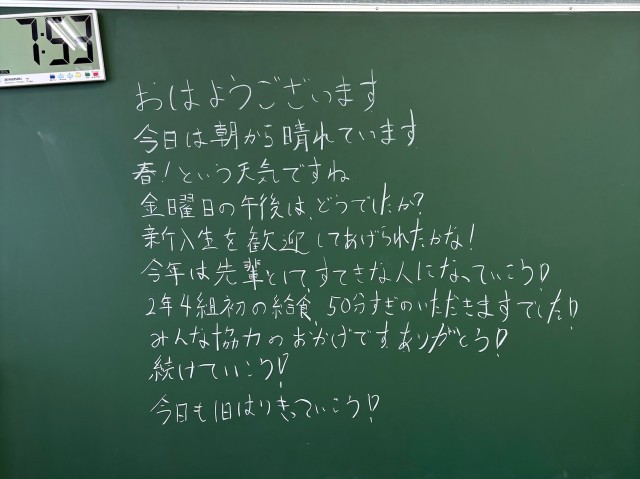 7:53
おはようございます
今日は朝から晴れています
春!という天気ですね
金曜日の午後は、どうでしたか?
新入生を歓迎してあげられたかな!
今年は先輩として、すてきな人になっていこう!
2年4組初の給食、50分すぎのいただきますでした!
みんな協力のおかげです。ありがとう!
続けていこう!
今日も1日はりきっていこう!